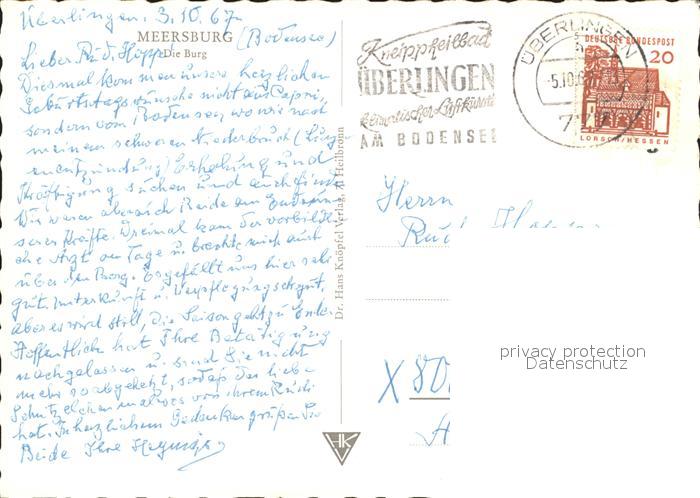 Überlingen. 3.10.67
MEERSBURG (Bodensee)
Die Burg
Lieber Rud. Hoppe!
Diesmal kommen unsere herzlichen
Geburtstagswünsche nicht aus Capri,
sondern vom Bodensee, wo wir nach
meinem schweren Niederbruch (Lung-
enentzündung) Erholung und
Kräftigung suchen und auch finden.
Wir waren aber auch Beide am Ende un-
serer Kräfte. Dreimal kam der vorbildli-
che Arzt am Tage u. brachte mich auch
über den Berg. Es gefällt uns hier sehr
gut, Unterkunft u. Verpflegung sehr gut,
aber es wird still, die Saison geht zu Ende.
Hoffentlich hat Ihre Betätigung
nachgelassen u. sind Sie nicht
mehr so abgehetzt, sodaß das liebe
was von ihrem Rudi
hat. In herzlichem Gedenken grüßen Sie
Beide Ihre
Dr. Hans Knöpfel Verlag, Heilbronn
HK
Kneippheilbad
ÜBERLINGEN
heilklimatischer Luftkurort
AM BODENSEE
ÜBERLINGEN
-5.10.6
DEUTSCHE BUNDESPOST
20
LORSCH/HESSEN
Herrn
Rud.
X 80
privacy protection
Datenschutz